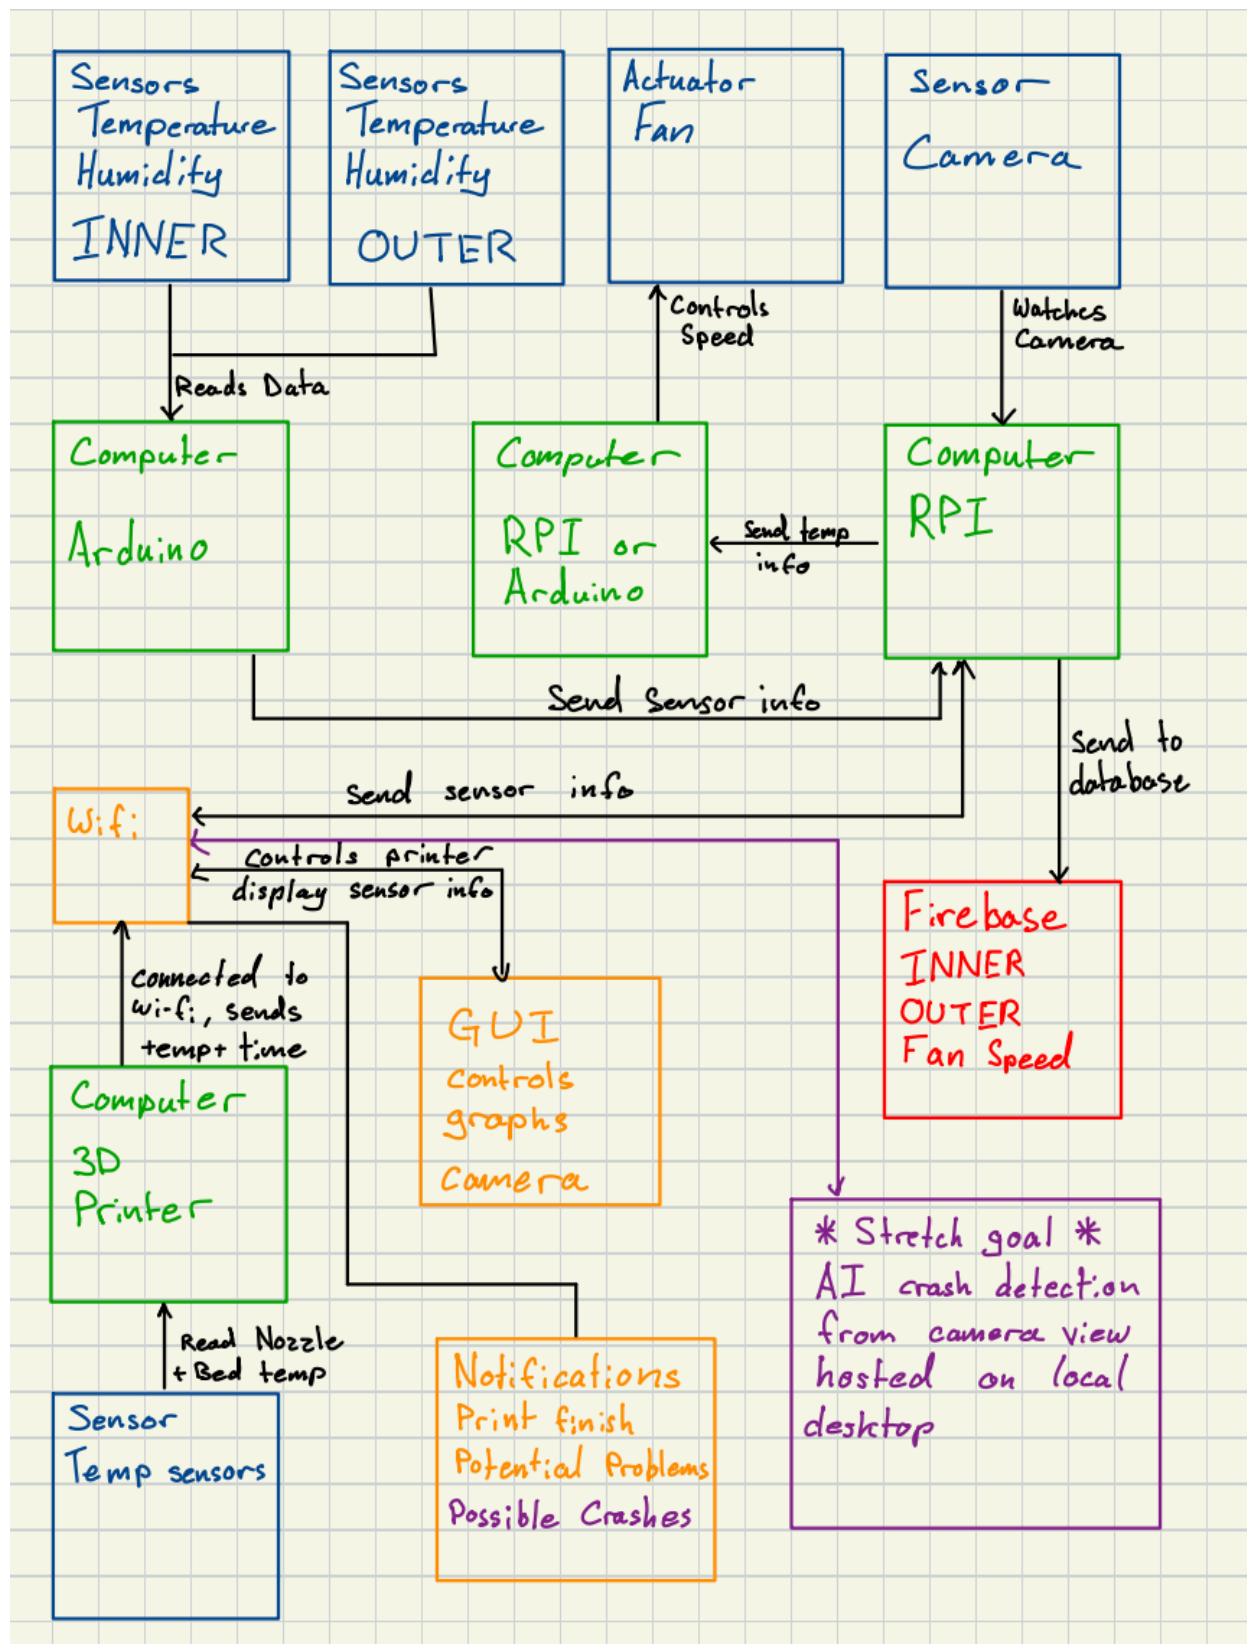 Sensors
Temperature
Humidity
INNER
Sensors
Temperature
Humidity
OUTER
Actuator
Fan
Sensor
Camera
Reads Data
Controls
Speed
Watches
Camera
Computer
Arduino
Computer
RPI or
Arduino
Send temp
info
Computer
RPI
Send Sensor info
Send to
database
Send sensor info
Wifi
Controls printer
display sensor info
Connected to
Wi-fi, sends
temp + time
GUI
Controls
graphs
Camera
Firebase
INNER
OUTER
Fan Speed
Computer
3D
Printer
* Stretch goal *
AI crash detection
from camera view
hosted on local
desktop
Read Nozzle
+ Bed temp
Sensor
Temp sensors
Notifications
Print finish
Potential Problems
Possible Crashes